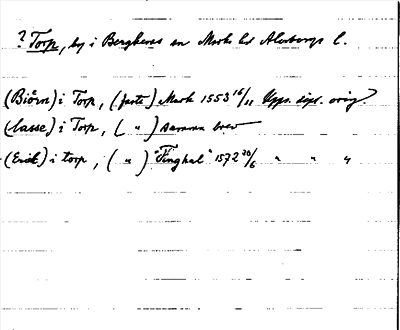 ? Torp, by i Bergheres sn Marks hd Alvsborgs l.
(Biörn) i Torp, (faste) Mark 1553 16/11 Upps. dipl. orig.
(Lasse) i Torp, ( „ ) samma brev
(Erick) i torp, ( „ ) "Tinghul" 1572 20/6 „ „ „